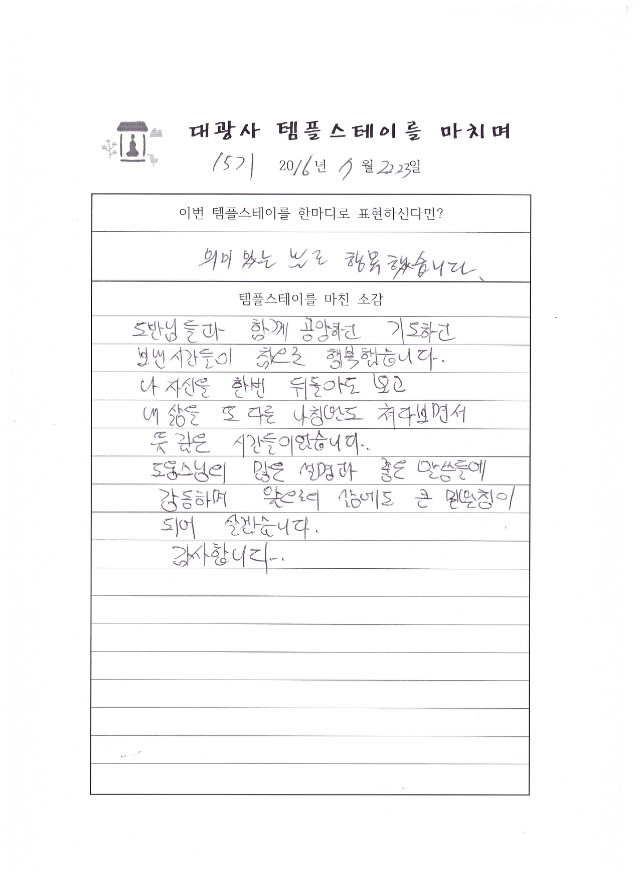 대광사 템플스테이를 마치며
15기 2016년 월 22.23일
이번 템플스테이를 한마디로 표현하신다면?
의미 있는 행복했습니다.
템플스테이를 마친 소감
도반님들과 함께 공양하고 기도하고
보낸시간들이 참으로 행복했습니다.
나 자신을 한번 뒤돌아도 보고
내 삶을 또 다른 나침반도 쳐다보면서
뜻 깊은 시간들이었습니다.
많은 설명과 좋은 말씀들에
감동하며 앞으로의 삶에도 큰
되어 살겠습니다.
감사합니다...